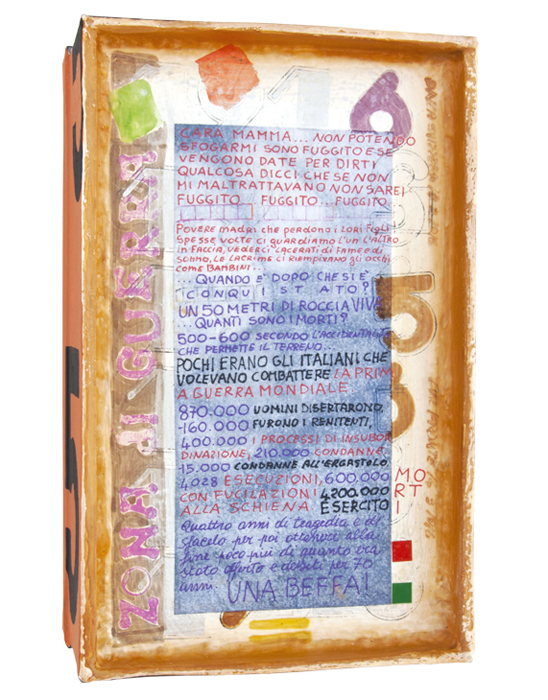 ZONA di GUERRA
CARA MAMMA... NON POTENDO
SFOGARMI SONO FUGGITO E SE
VENGONO DATE PER DIRTI
QUALCOSA DICCI CHE SE NON
MI MALTRATTAVANO NON SAREI
FUGGITO... FUGGITO... FUGGITO.
POVERE MADRI che perdono i lori figli!
SPESSE VOLTE ci guardiamo l'un l'altro
in FACCIA, vederci LACERATI di fame e di
SONNO, LE LACRIME ci RIEMPIVANO gli occhi
come BAMBINI...
...QUANDO E' DOPO CHE SI E'
CONQUISTATO?
UN 50 METRI DI ROCCIA VIVA
...QUANTI SONO I MORTI?
500-600 SECONDO L'ACCIDENTALITA'
CHE PERMETTE IL TERRENO...
POCHI ERANO GLI ITALIANI CHE
VOLEVANO COMBATTERE LA PRIM
A GUERRA MONDIALE
870.000 UOMINI DISERTARONO,
-160.000 FURONO I RENITENTI,
400.000 I PROCESSI DI INSUBOR
DINAZIONE, 210.000 CONDANNE
-15.000 CONDANNE ALL'ERGASTOLO
4.028 ESECUZIONI, 600.000 MO
CON FUCILAZIONI 4.200.000 RT
ALLA SCHIENA. ESERCITO I
Quattro anni di tragedia e di
sfacelo per poi ottenere alla
fine poco più di quanto era
stato offerto e debiti per 70
anni. UNA BEFFA!
6
5